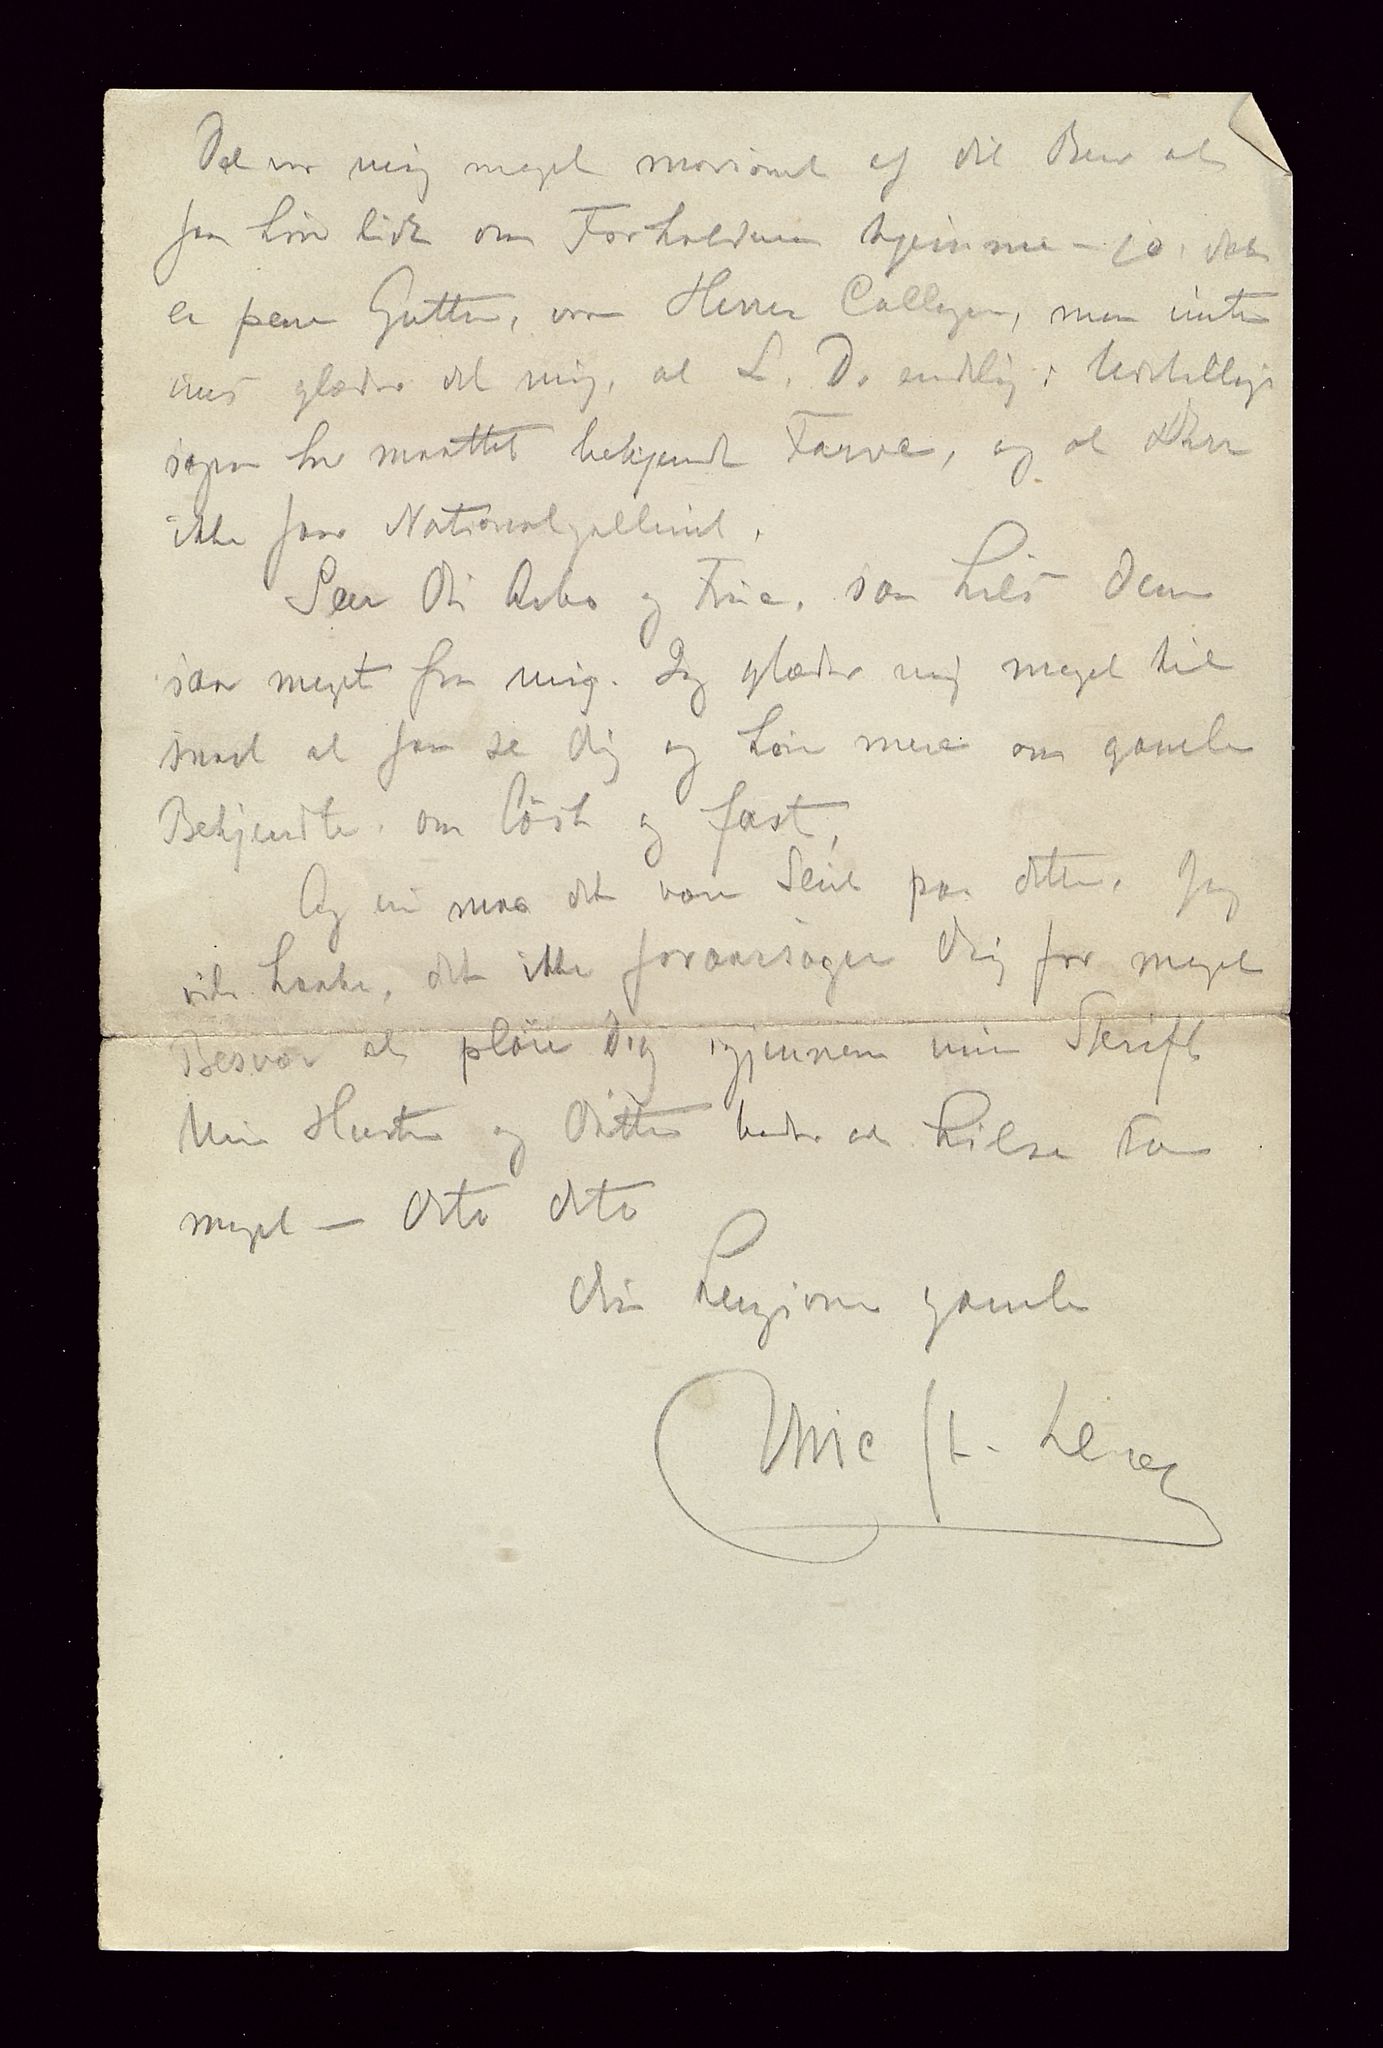 Det var mig meget morsomt af dit Brev at
faa høre lidt om Forholdene hjemme – jo, det
er pene Gutter, vore Herrer Collegen, men
glæder det mig, at L. D. endelig i Udstillings
sagen har maattet bekjende Farve, og at
ikke faar Nationalgalleriet.
Seer Du Arbo og Frue, saa hils dem
saa meget fra mig. Jeg glæder mig meget til
snart at faa se dig og høre mere om gamle
Bekjendte, om løst og fast,
Og nu maa det være Slut paa dette. Jeg
vil haabe, det ikke foraarsager Dig for meget
Besvær at pløie Dig igjennem min Skrift
Min Hustru og Datter beder at hilse saa
meget – dito dito
din hengivne gamle